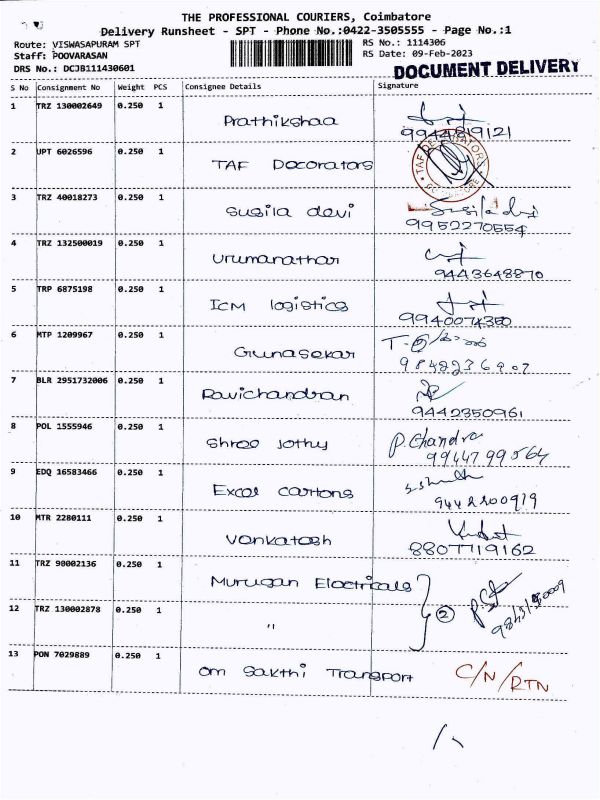 THE PROFESSIONAL COURIERS, Coimbatore
Delivery Runsheet - SPT - Phone No.:0422-3505555 - Page No.:1
Route: VISWASAPURAM SPT
Staff: POOVARASAN
DRS No.: DCJB111430601
RS No.: 1114306
RS Date: 09-Feb-2023
DOCUMENT DELIVERY
S No Consignment No Weight PCS Consignee Details Signature
1 TRZ 130002649 0.250 1 Prathikshaa
9944819121
2 UPT 6026596 0.250 1 TAF Decorators TAF DECORATORS COIMBATORE
3 TRZ 40018273 0.250 1 Susila devi Susila devi
9952270554
4 TRZ 132500019 0.250 1 Urumanathar
9443648870
5 TRP 6875198 0.250 1 ICM logistics
9940074350
6 MTP 1209967 0.250 1 Gunasekar
7 BLR 2951732006 0.250 1 Ravichandran
9442350961
8 POL 1555946 0.250 1 Shree Jothy P. Chandra
9944799564
9 EDQ 16583466 0.250 1 Excel cartons
10 MTR 2280111 0.250 1 Venkatesh
8807719162
11 TRZ 90002136 0.250 1 Murugan Electricals
12 TRZ 130002878 0.250 1 " 2
13 PON 7029889 0.250 1 Om Sakthi Transport C/N/RTN